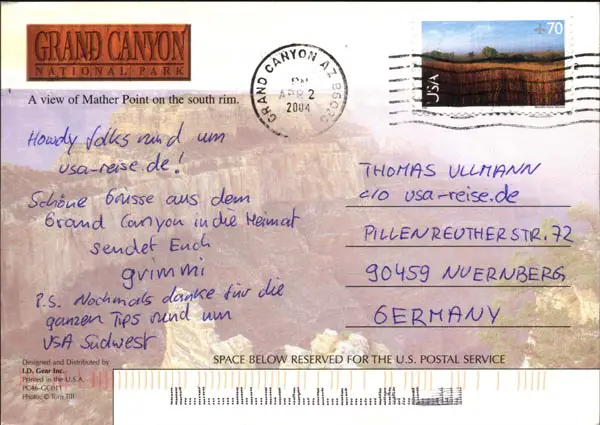 GRAND CANYON
NATIONAL PARK
A view of Mather Point on the south rim.
GRAND CANYON AZ 86023
PM
APR 2
2004
70
USA
Howdy folks rund um
usa-reise.de!
Schöne Grüsse aus dem
Grand Canyon in die Heimat
sendet Euch
grimmi
P.S. Nochmals danke für die
ganzen Tips rund um
USA Südwest
THOMAS ULLMANN
c/o usa-reise.de
PILLENREUTHERSTR. 72
90459 NUERNBERG
GERMANY
SPACE BELOW RESERVED FOR THE U.S. POSTAL SERVICE
Designed and Distributed by
I.D. Gear Inc.
Printed in the U.S.A.
PC46-GC011
Photo: © Tom Till